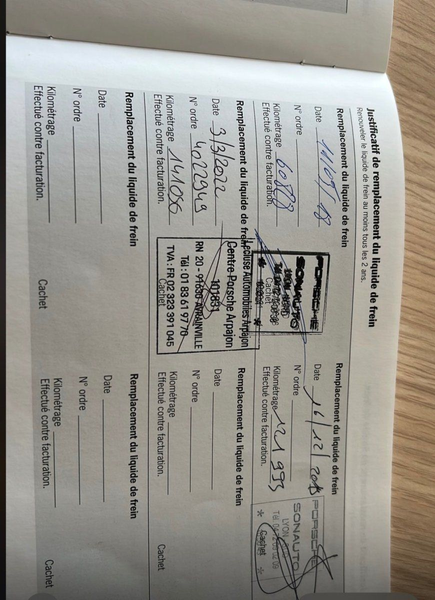 Justificatif de remplacement du liquide de frein
Renouveler le liquide de frein au moins tous les 2 ans.
Remplacement du liquide de frein
Date
N° ordre
Kilométrage 60888
Effectué contre facturation.
Cachet
PORSCHE
SONAUTO
Remplacement du liquide de frein
Date 16/12/
N° ordre
Kilométrage 121 993
Effectué contre facturation.
Cachet
PORSCHE
SONAUTO
LYON
Remplacement du liquide de frein
Date 3/3/2022
N° ordre 4022949
Kilométrage 141056
Effectué contre facturation.
Cachet
Lecluse Automobiles Arpajon
Centre Porsche Arpajon
RN 20 - 91630 AVRAINVILLE
Tél : 01 83 61 9770
TVA : FR 02 323 391 045
Remplacement du liquide de frein
Date
N° ordre
Kilométrage
Effectué contre facturation.
Cachet
Remplacement du liquide de frein
Date
N° ordre
Kilométrage
Effectué contre facturation.
Cachet
Remplacement du liquide de frein
Date
N° ordre
Kilométrage
Effectué contre facturation.
Cachet